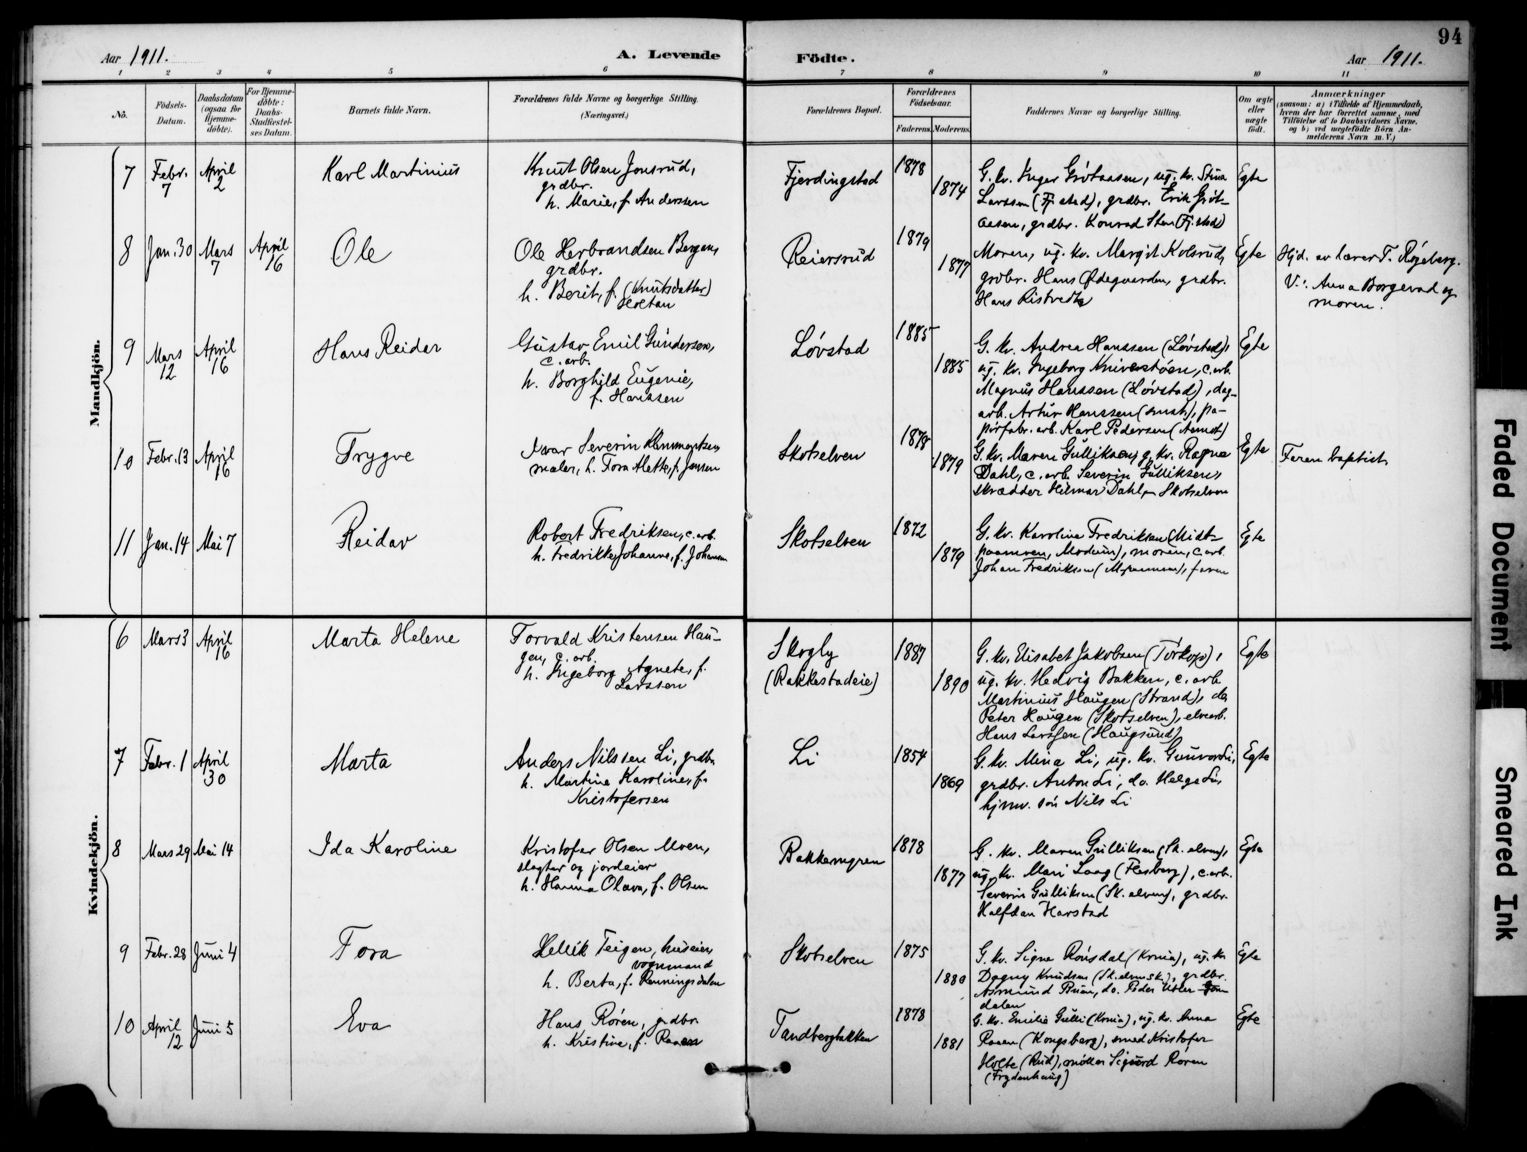 94
Aar 1911.
A. Levende Fødte.
Aar 1911.
1 2 3 4 5 6 7 8 9 10 11
No.
Fødsels-Datum.
Daabsdatum (ogsaa for Hjemmedøbte).
For Hjemmedøbte: Daabs-Stadfæstelses Datum.
Barnets fulde Navn.
Forældrenes fulde Navne og borgerlige Stilling. (Næringsvei.)
Forældrenes Bopæl.
Forældrenes Fødselsaar.
Faderens. Moderens.
Faddernes Navne og borgerlige Stilling.
Om ægte eller uægte født.
Anmærkninger
Mandkjøn.
7 Febr. 7 April 2 Karl Martinius
Knut Olsen Jonsrud,
grdbr.
h. Marie, f. Anderssen
Fjerdingstad 1878 1874
G. kv. Inger Grøtaasen, ug. kv. Stina
Larssen (Fj.stad), grdbr. Erik Grøt-
aasen, grdbr. Konrad Sten (Fj.stad)
Egte
8 Jan. 30 Mars 7 April 16 Ole
Ole Herbrandsen Bergan,
grdbr.
h. Berit, f. (Knutsdatter)
Reiersrud 1879 1877
Moren, ug. kv. Margit Kolsrud,
grdbr. Hans Ødegaarden, grdbr.
Hans Ristvedt
Egte
Hjd. av lærer T. Røgeberg.
V.: Anna Borgerud og
moren.
9 Mars 12 April 16 Hans Reidar
Gustav Emil Gundersen,
c. arb.
h. Borghild Eugenie,
f. Hanssen
Løvstad 1885 1885
G. kv. Andrea Hanssen (Løvstad),
ug. kv. Ingeborg Kniverstøen, c. arb.
Magnus Hanssen (Løvstad), dag-
arb. Artur Hanssen, pa-
pirfabr. arb. Karl Pedersen
Egte
10 Febr. 13 April 16 Trygve
Ivar Severin Klemmetsen
maler, h. Tora Alette, f. Jensen
Skotselven 1879
G. kv. Maren Gulliksen, g. kv. Ragna
Dahl, c. arb. Severin Gulliksen,
skrædder Hilmar Dahl, Skotselven
Egte
Faren baptist.
11 Jan. 14 Mai 7 Reidar
Robert Fredriksen, c. arb.
h. Fredrikke Johanne, f. Johansen
Skotselven 1872 1879
G. kv. Karoline Fredriksen (Midt-
Modum), moren, c. arb.
Johan Fredriksen, faren
Egte
Kvindekjøn.
6 Mars 3 April 16 Marta Helene
Torvald Kristensen Hau-
gen, c. arb.
h. Ingeborg Agnete, f.
Larssen
Skogly
(Rakkestadeie)
1887 1890
G. kv. Elisabet Jakobsen (Torkop),
ug. kv. Hedvig Bakken, c. arb.
Martinius Haugen (Strand), do
Peter Haugen (Skotselven),
Hans Larssen (Haugsund)
Egte
7 Febr. 1 April 30 Marta
Anders Nilssen Li, grdbr.
h. Martine Karoline, f.
Kristofersen
Li 1854 1869
G. kv. Mina Li, ug. kv. Gunvor Li,
grdbr. Anton Li, do. Helge Li,
hjmv. søn Nils Li
Egte
8 Mars 29 Mai 14 Ida Karoline
Kristofer Olsen Moen,
slagter og jordeier
h. Hanna Olava, f. Olsen
Bakkemyren 1878 1877
G. kv. Maren Gulliksen (Sk.elven),
ug. kv. Mari Laag, c. arb.
Severin Gulliksen (Sk.elven), grdbr.
Halfdan Harstad
Egte
9 Febr. 28 Juni 4 Tora
Hellik Teigen, huseier,
vognmand
h. Berta, f. Renningsdalen
Skotselven 1875 1880
G. kv. Signe Rønsdal (Krnia), ug. kv.
Dagny Knudsen (Sk.elven), grdbr.
Asmund Bruen, do. Peder
dalen
Egte
10 April 12 Juni 5 Eva
Hans Røren, grdbr.
h. Kristine, f. Raaen
Tandbergløkken 1878 1881
G. kv. Emilie Gulli (Krnia), ug. kv. Anna
Raaen (Kongsberg), smed Kristofer
Holte (Rud), møller Sigurd Røren
(Frydenhaug)
Egte
Faded Document
Smeared Ink